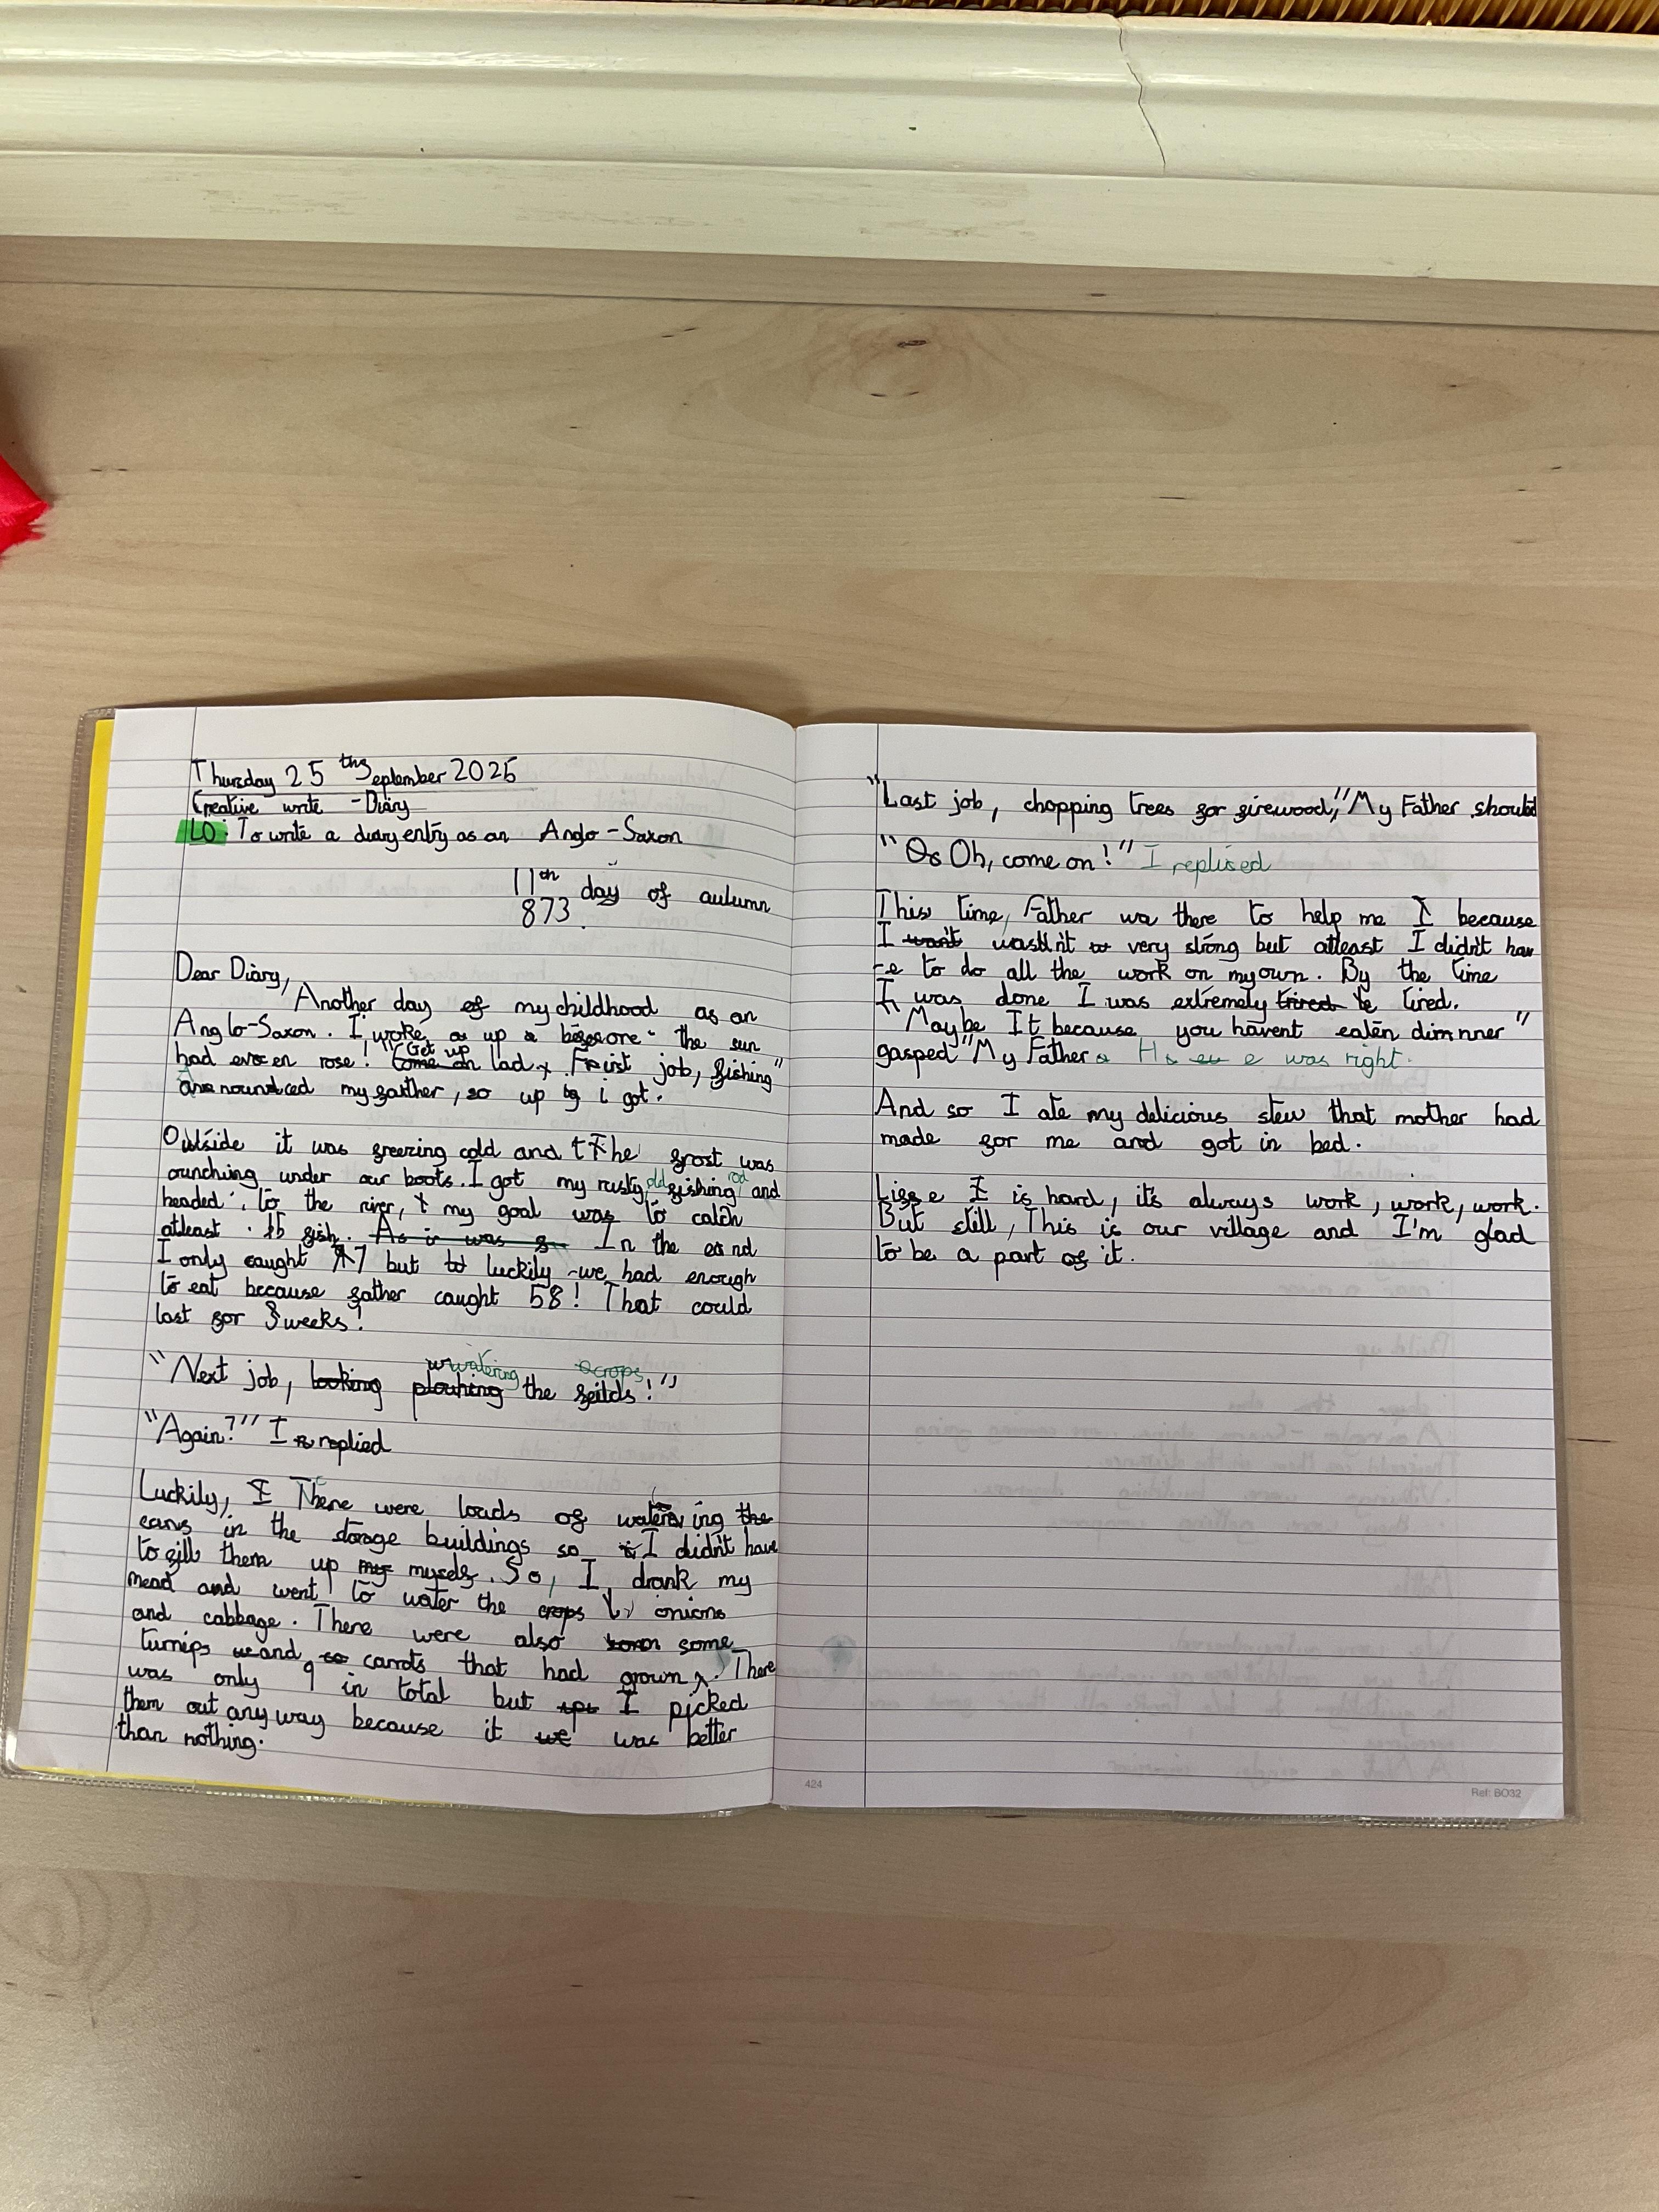 Thursday 25th September 2025
Creative write - Diary
LO: To write a diary entry as an Anglo-Saxon
11th day of autumn
873.
Dear Diary,
Another day of my childhood as an
Anglo-Saxon. I woke up before the sun
had even rose! "Get up lad, First job, fishing"
announced my father, so up i got.
Outside it was freezing cold and the frost was
crunching under our boots. I got my rusty old fishing rod and
headed to the river, my goal was to catch
atleast 15 fish. In the end
I only caught 7 but luckily we had enough
to eat because father caught 58! That could
last for 8 weeks!
"Next job, watering the crops!"
"Again?" I replied
Luckily, There were loads of watering
cans in the storage buildings so I didn't have
to fill them up myself. So, I drank my
mead and went to water the onions
and cabbage. There were also some
turnips and carrots that had grown. There
was only 9 in total but I picked
them out anyway because it was better
than nothing.
"Last job, chopping trees for firewood," My Father should
"Oh, come on!" I replised
This time, Father wa there to help me because
I wasn't very strong but atleast I didn't hav
-e to do all the work on my own. By the time
I was done I was extremely tired.
"Maybe It because you havent eaten dimnner"
gasped "My Father He was right.
And so I ate my delicious stew that mother had
made for me and got in bed.
Life is hard, it's always work, work, work.
But still, This is our village and I'm glad
to be a part of it.
424
Ref: BO32